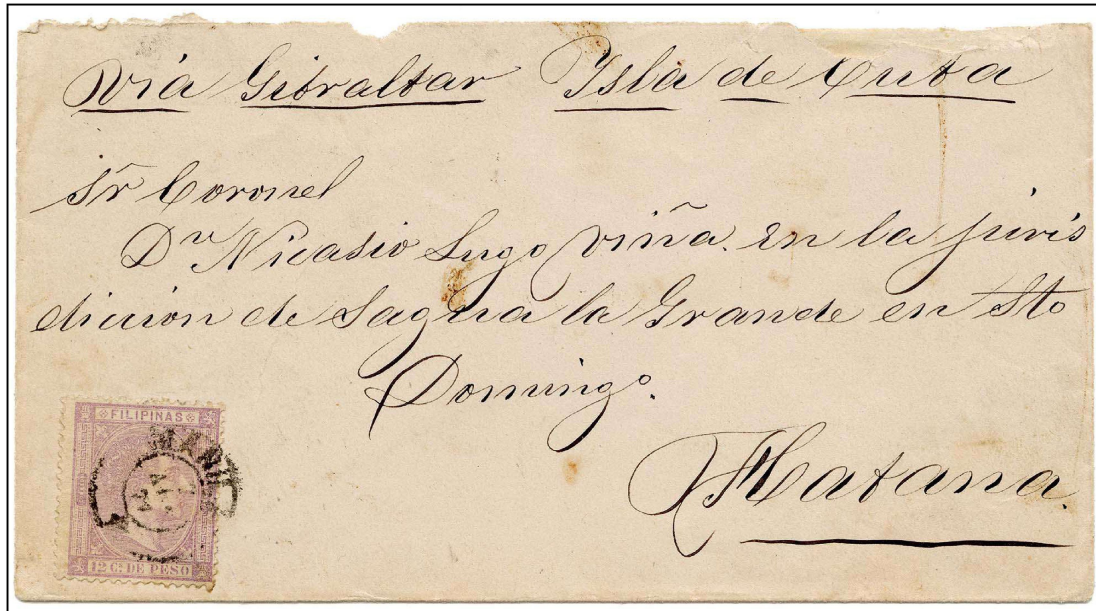 Via Gibraltar Ysla de Cuba
Sr Coronel
Dn Nicasio Lugo Viña. en la juris
diccion de Sagua la Grande en Sto
Domingo.
Habana.
FILIPINAS
MANIL
12 C. DE PESO